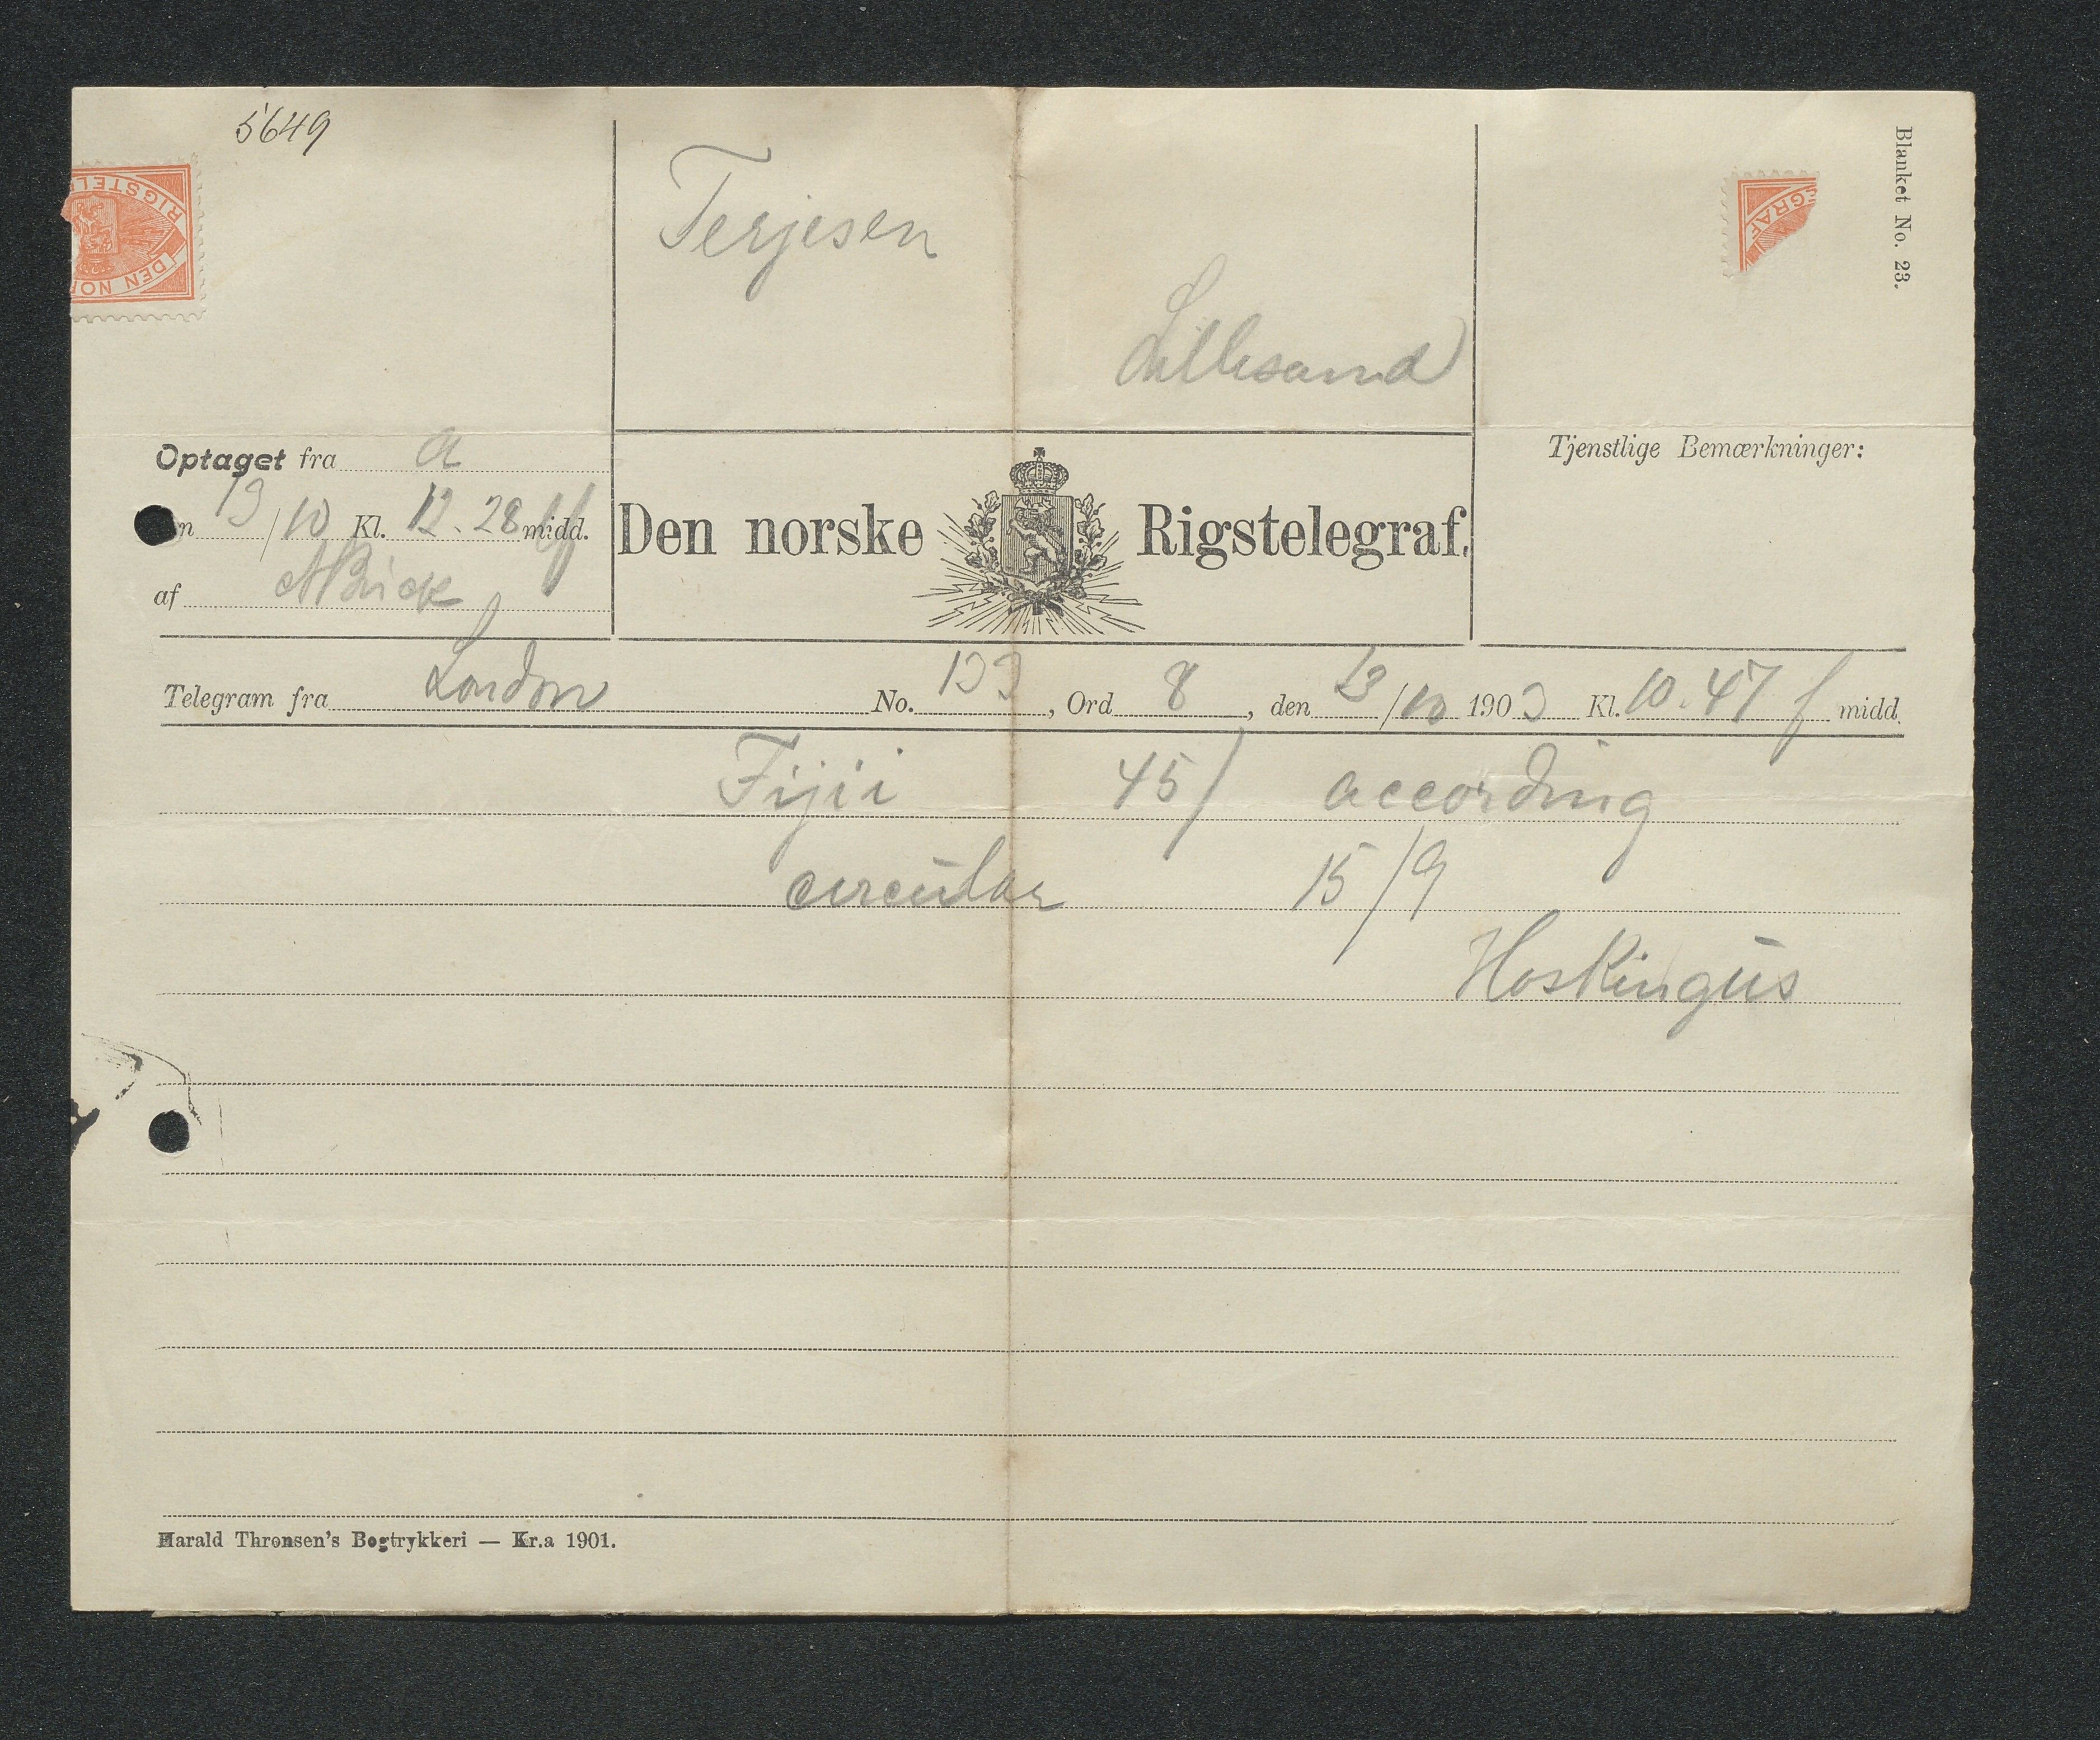 5649
Blanket No. 23.
RIGSTEL
DEN NOR
EGRAF
Terjesen
Lillesand
Optaget fra a
Tjenstlige Bemærkninger:
n 13/10 Kl. 12.28 midd.
Den norske Rigstelegraf.
af
Telegram fra London No. 133, Ord 8, den 13/10 1903 Kl. 10.47 f midd.
Fijii 45/ according
circular 15/9
Hoskingus
Harald Thronsen's Bogtrykkeri — Kr.a 1901.